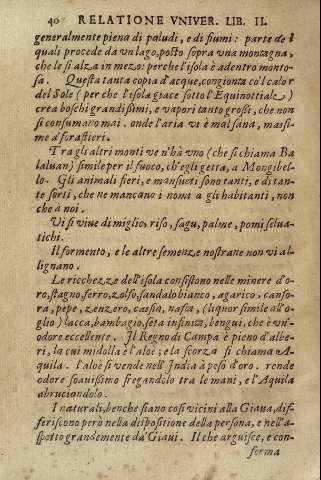 40 RELATIONE VNIVER. LIB. II.
generalmente piena di paludi, e di fiumi: parte de i
quali procede da vn lago, posto sopra vna montagna,
che le si alza in mezo: perche l'isola è adentro monto-
sa. Questa tanta copia d'acque, congionta co'l calor
del Sole (perche l'isola giace sotto l'Equinottiale)
crea boschi grandissimi, e vapori tanto grossi, che non
si consumano mai. onde l'aria vi è mal sana, massi-
me a' forastieri.
Tra gli altri monti ve n'hà vno (che si chiama Ba
laluan) simile per il fuoco, ch'egli getta, a Mongibel-
lo. Gli animali fieri, e mansueti sono tanti, e di tan-
te sorti, che ne mancano i nomi a gli habitanti, non
che à noi.
Vi si viue di miglio, riso, sagu, palme, pomi selua-
tichi.
Il formento, e le altre semenze nostrane non vi al-
lignano.
Le ricchezze dell'isola consistono nelle minere d'o-
ro, stagno, ferro, zolfo, sandalo bianco, agarico, canfo-
ra, pepe, zenzero, cassia, nafta, (liquor simile all'o-
glio) lacca, bambagio, seta infinita, bengui, che è vn'-
odore eccellente. Il Regno di Campa è pieno d'albe-
ri, la cui midolla è l'aloè; e la scorza si chiama A-
quila. l'aloè si vende nell'India à peso d'oro. rende
odore soauissimo fregandolo tra le mani, e l'Aquila
abruciandolo.
I naturali, benche siano così vicini alla Giaua, dif-
feriscono però nella dispositione della persona, e nell'a-
spetto grandemente da' Giaui. Il che arguisce, e con-
ferma